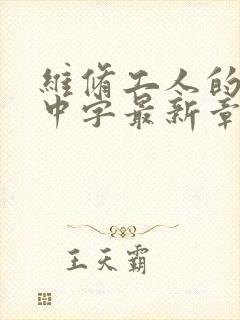 維脩工人的
中字最新章
王天霸